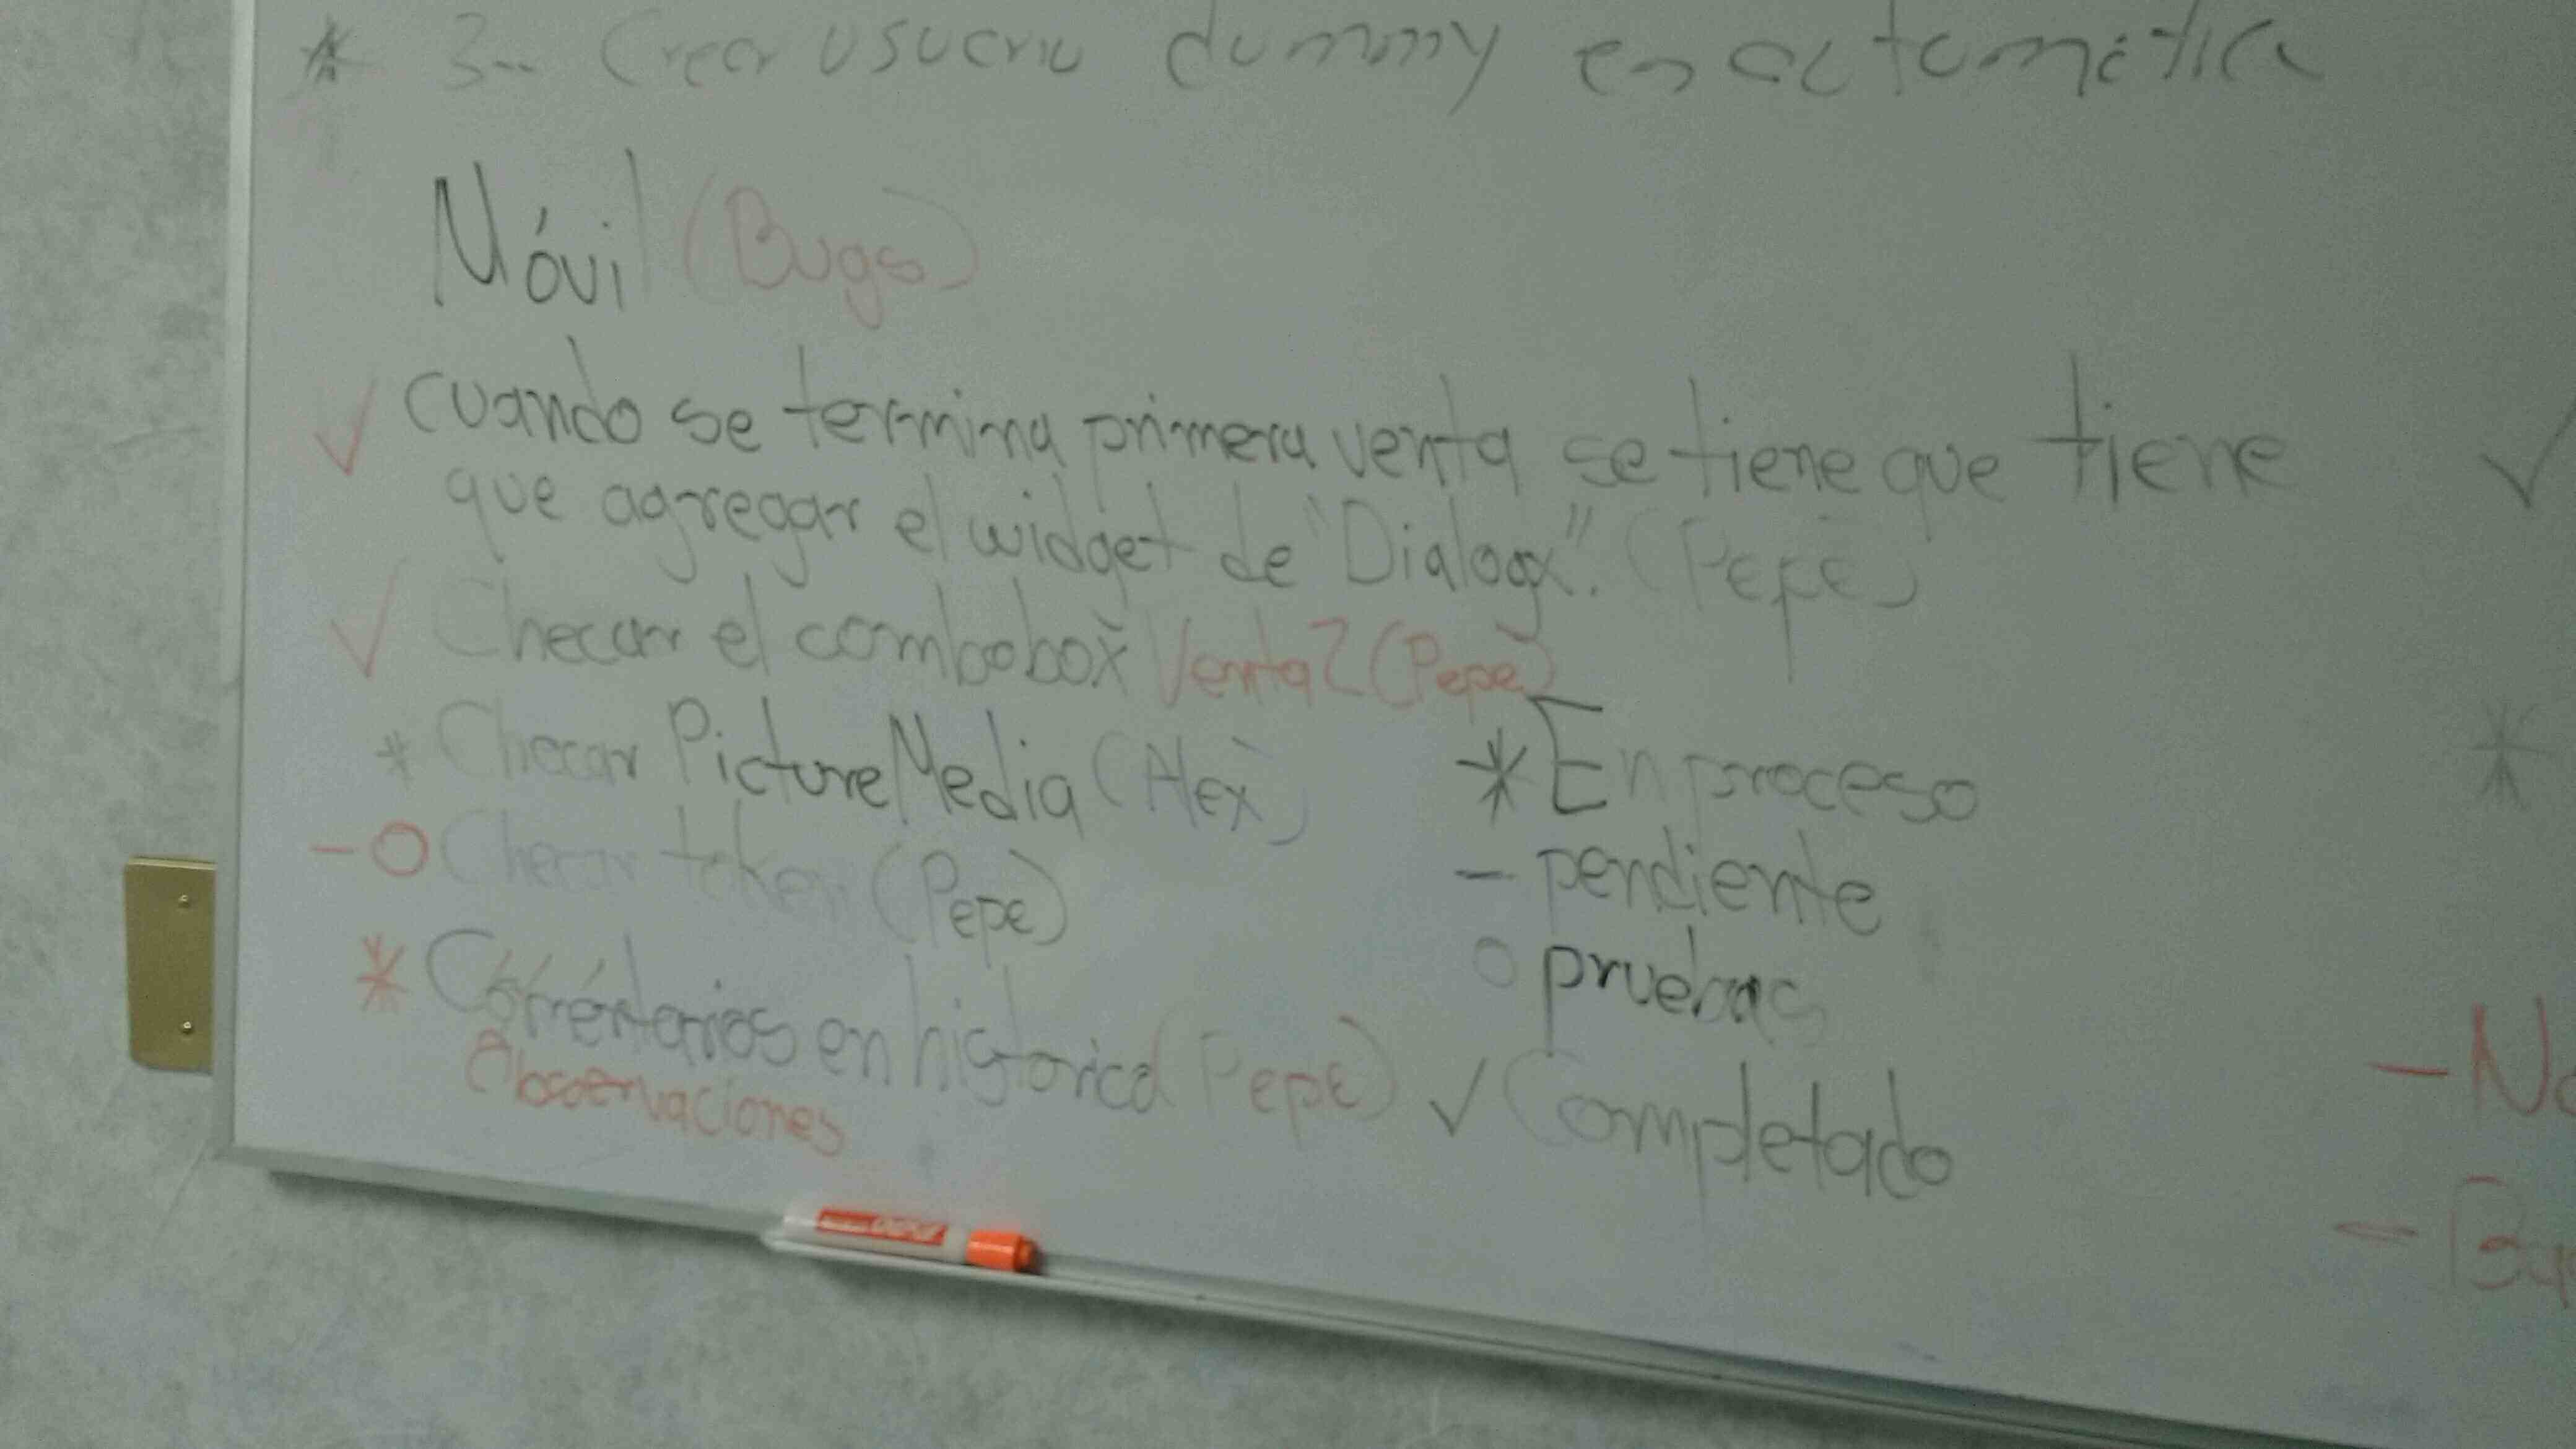 * 3-- Crear usuario dummy en automática
Móvil (Bugs)
✓ cuando se termina primera venta se tiene que tiene
que agregar el widget de "Dialogx". (Pepe)
✓ Checar el combobox Venta2 (Pepe)
* Checar PictureMedia (Alex)
- O Checar token (Pepe)
* Comentarios en historico (Pepe)
Observaciones
* En proceso
- pendiente
O pruebas
✓ Completado